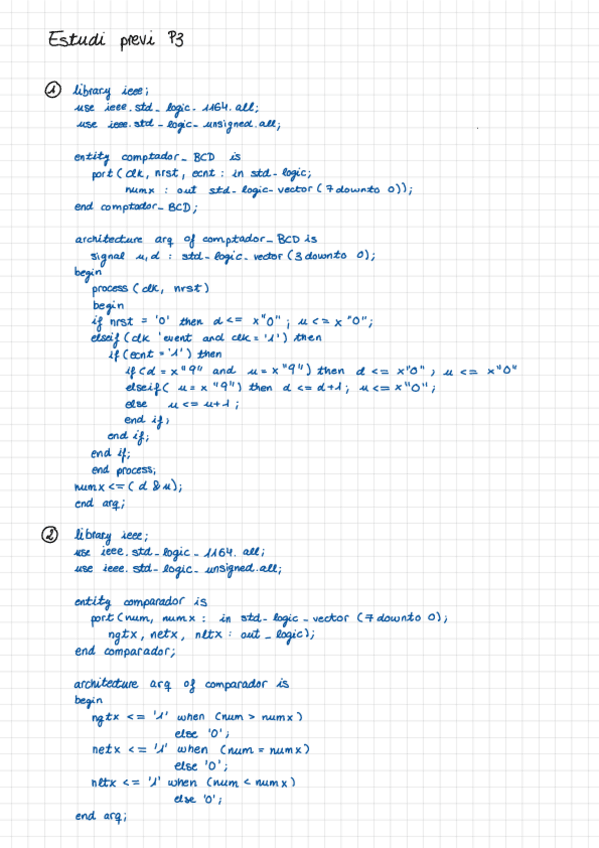 Estudi previ P3
1 library ieee;
use ieee.std_logic_1164.all;
use ieee.std_logic_unsigned.all;
entity comptador_BCD is
port (clk, nrst, ecnt : in std_logic;
numx : out std_logic_vector (7 downto 0));
end comptador_BCD;
architecture arq of comptador_BCD is
signal u,d : std_logic_vector (3 downto 0);
begin
process (clk, nrst)
begin
if nrst = '0' then d <= x"0"; u <= x"0";
elseif (clk'event and clk = '1') then
if (ecnt = '1') then
if (d = x"9" and u = x"9") then d <= x"0", u <= x"0"
elseif( u = x"9") then d <= d+1; u <= x"0";
else u <= u+1;
end if;
end if;
end if;
end process;
numx <= (d & u);
end arq;
2 library ieee;
use ieee.std_logic_1164.all;
use ieee.std_logic_unsigned.all;
entity comparador is
port (num, numx : in std_logic_vector (7 downto 0);
ngtx, netx, nltx : out_logic);
end comparador;
architecture arq of comparador is
begin
ngtx <= '1' when (num > numx)
else '0';
netx <= '1' when (num = numx)
else '0';
nltx <= '1' when (num < numx)
else '0';
end arq;